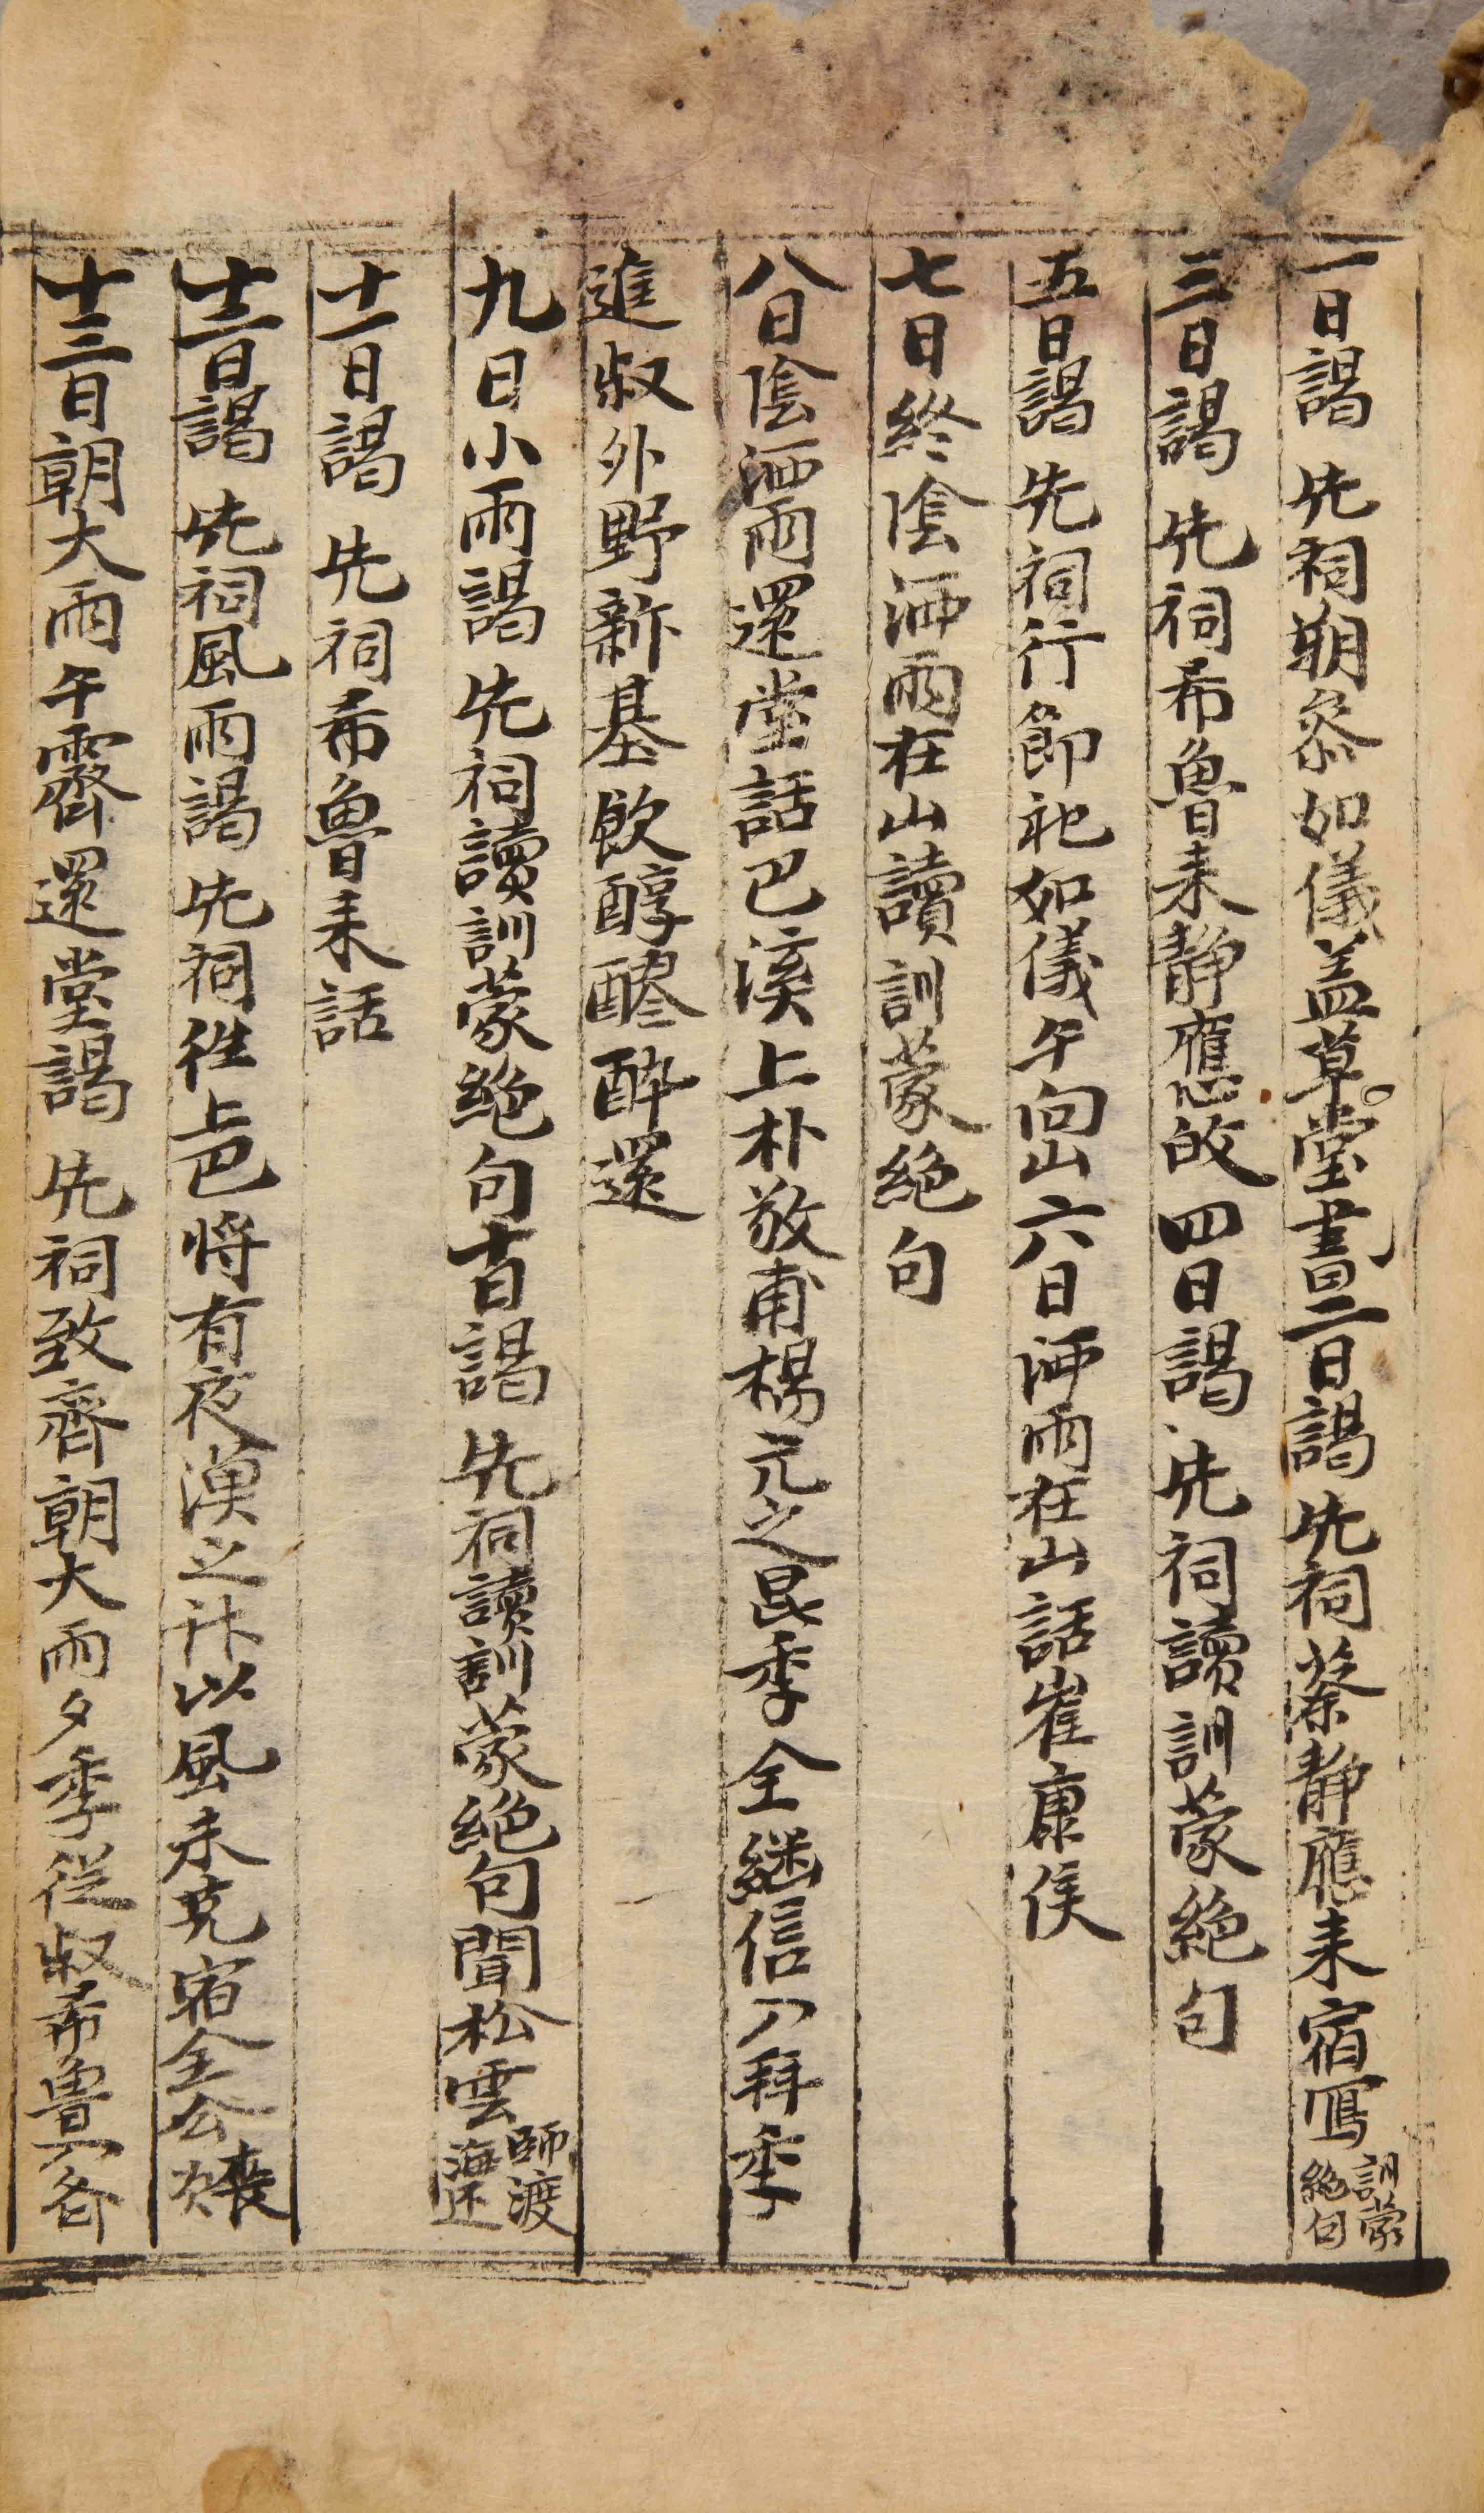 一日謁 先祠朔叅如儀盖草堂晝二日謁 先祠蔡靜應来宿寫訓蒙絶句
三日謁 先祠希魯来靜應故四日謁 先祠讀訓蒙絶句
五日謁 先祠行節祀如儀午向山六日洒雨在山話崔康侯
七日終陰洒雨在山讀訓蒙絶句
八日陰洒雨還堂話巴溪上朴敬甫楊元之昆季全繼信乃拜季
進叔外野新基飲醇醪醉還
九日小雨謁 先祠讀訓蒙絶句十日謁 先祠讀訓蒙絶句聞松雲師渡海還
十一日謁 先祠希魯来話
十二日謁 先祠風雨謁 先祠徃上邑将有夜漢之計以風未克宿全公喪次
十三日朝大雨午霽還堂謁 先祠致齊朝大雨夕季從叔希魯入各